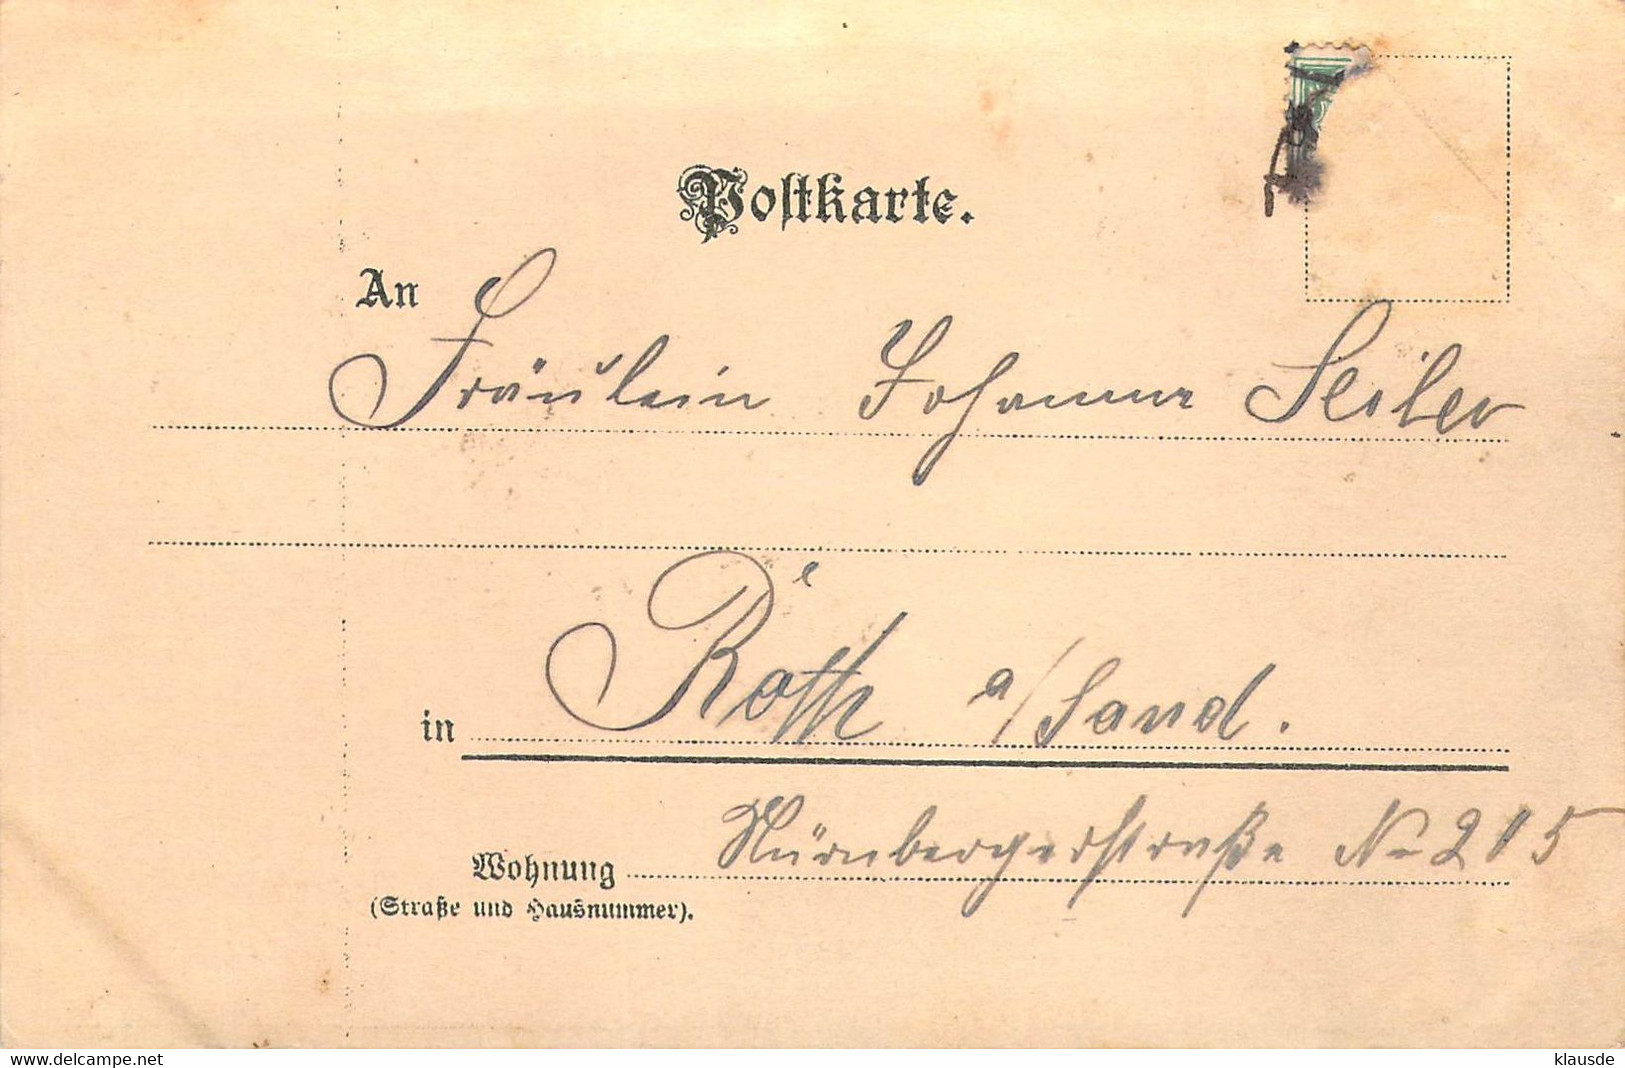 Postkarte.
An
Fräulein Johanna Seiler
in Roth a/Sand.
Wohnung Nürnbergerstraße No 215
(Straße und Hausnummer).
www.delcampe.net
klausde